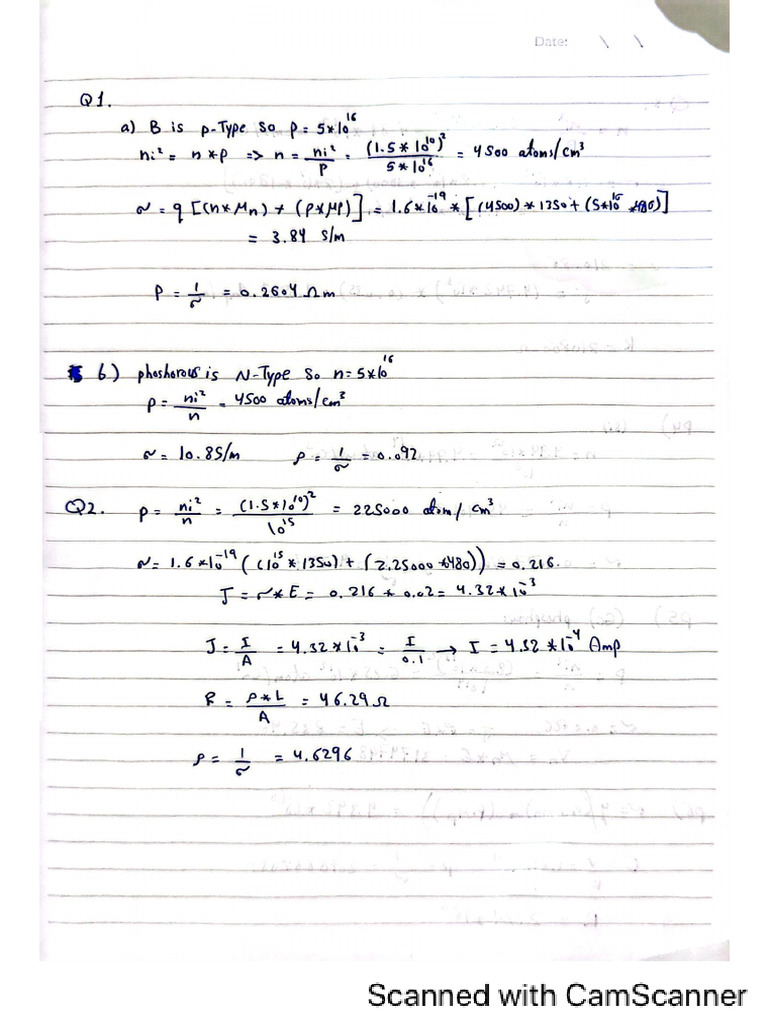 Date: \ \
Q1.
a) B is p-Type so p = 5*10^16
ni² = n*p => n = ni²/p = (1.5*10^10)²/5*10^16 = 4500 atoms/cm³
σ = q[(n*μn)+(p*μp)] = 1.6*10^-19*[(4500)*1350+(5*10^16*480)]
= 3.84 s/m
ρ = 1/σ = 0.2604 Ωm
b) phoshorous is N-Type so n=5*10^16
p = ni²/n = 4500 atoms/cm³
σ = 10.8S/m ρ = 1/σ = 0.092
Q2. p = ni²/n = (1.5*10^10)²/10^15 = 225000 atom/cm³
σ = 1.6*10^-19((10^15*1350)+(2.25000*480)) = 0.216.
J = σ*E = 0.216 * 0.02 = 4.32*10^-3
J = I/A = 4.32*10^-3 = I/0.1 → I = 4.32*10^-4 Amp
R = ρ*L/A = 46.29Ω
ρ = 1/σ = 4.6296
Scanned with CamScanner